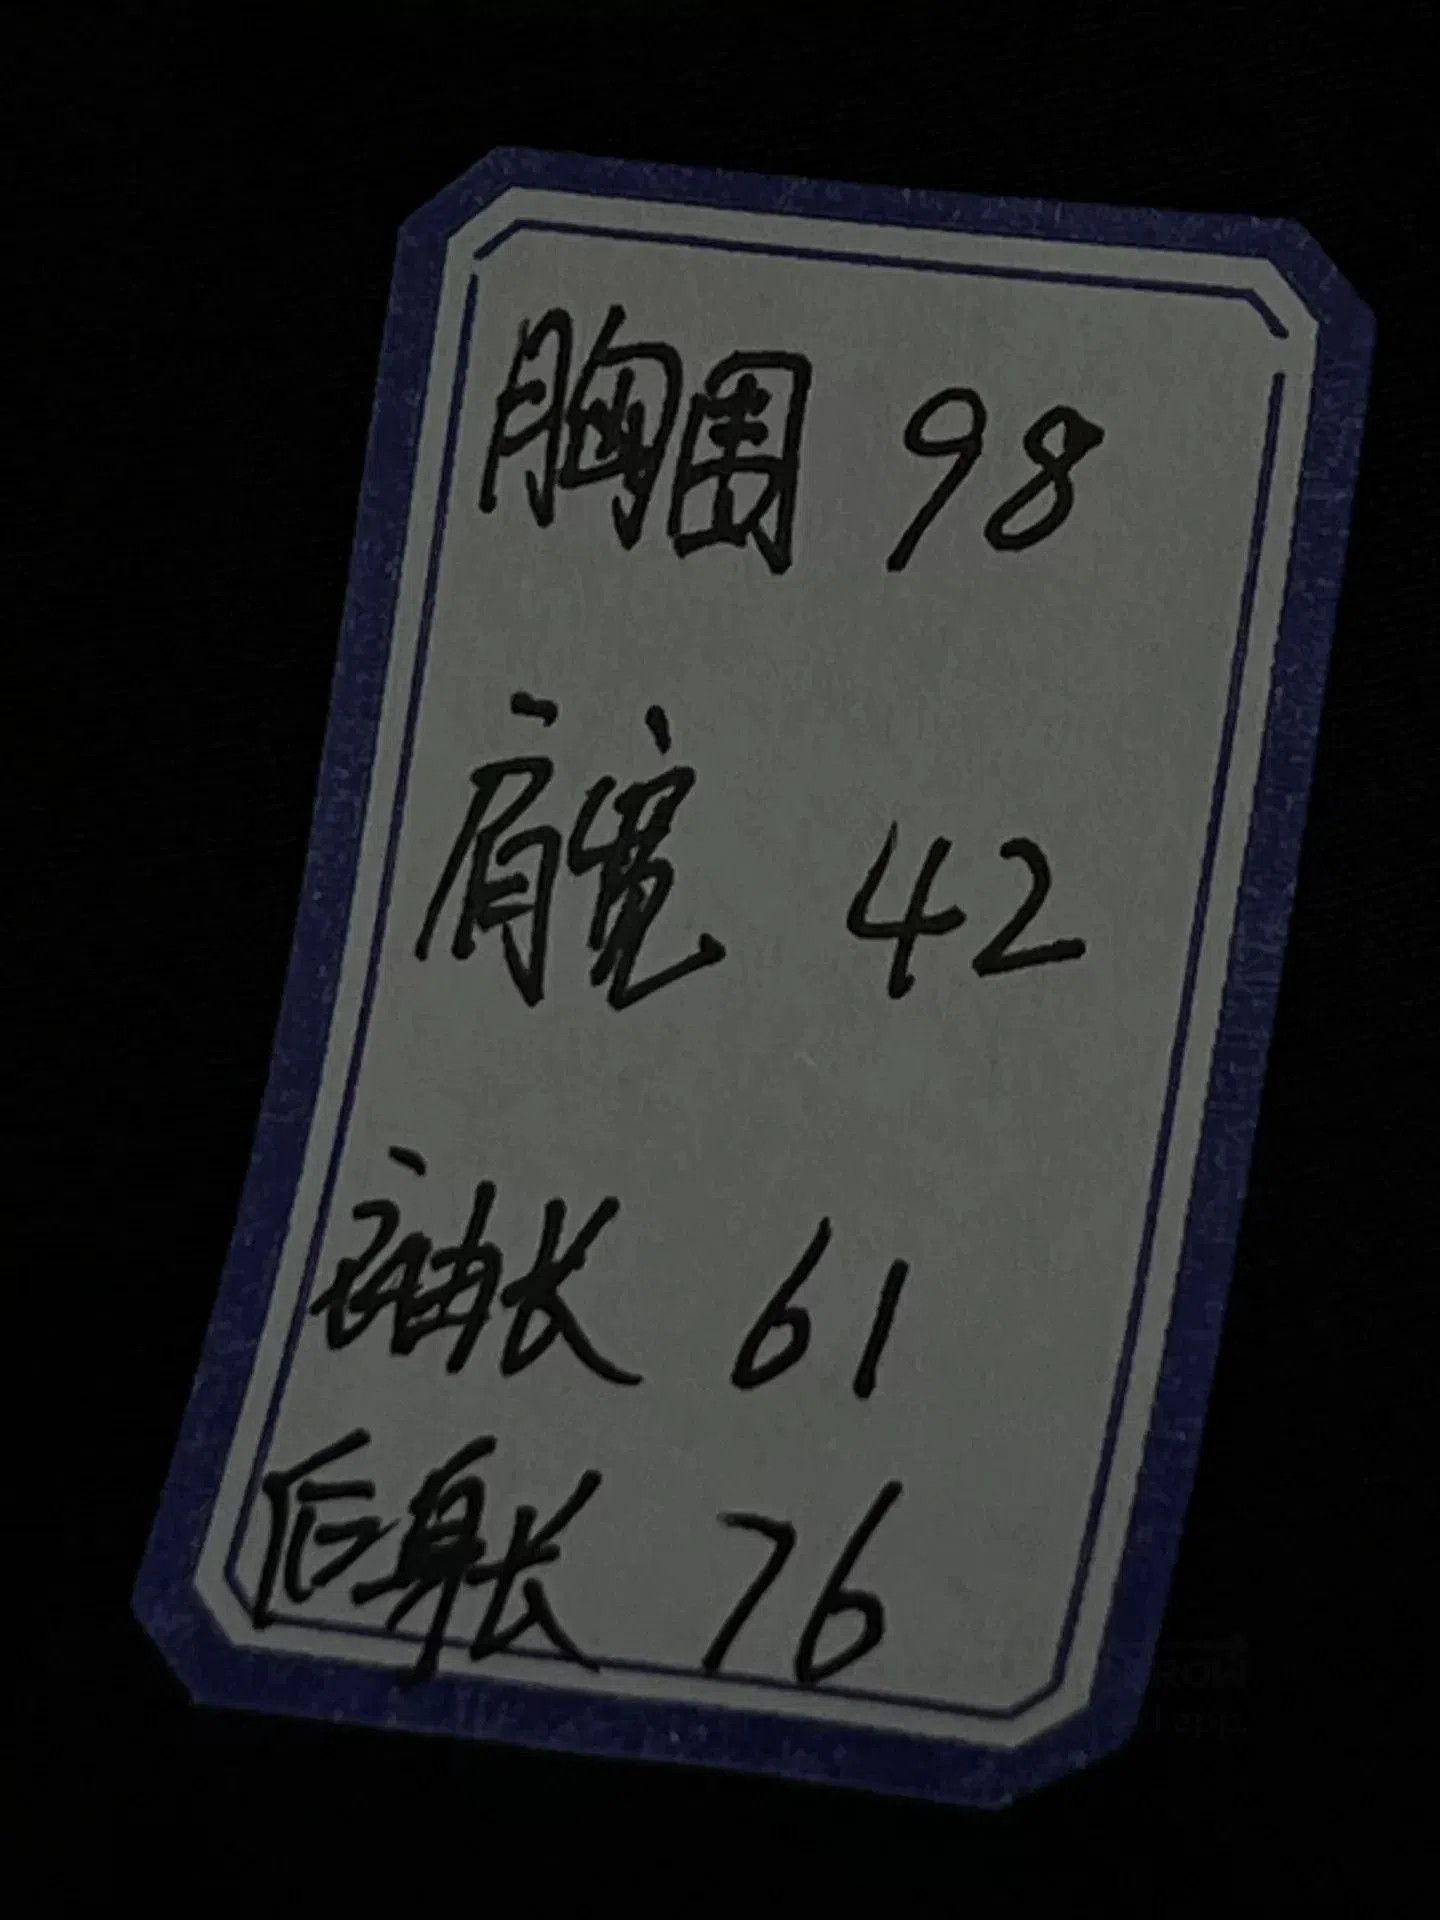 胸围 98
肩宽 42
袖长 61
后身长 76